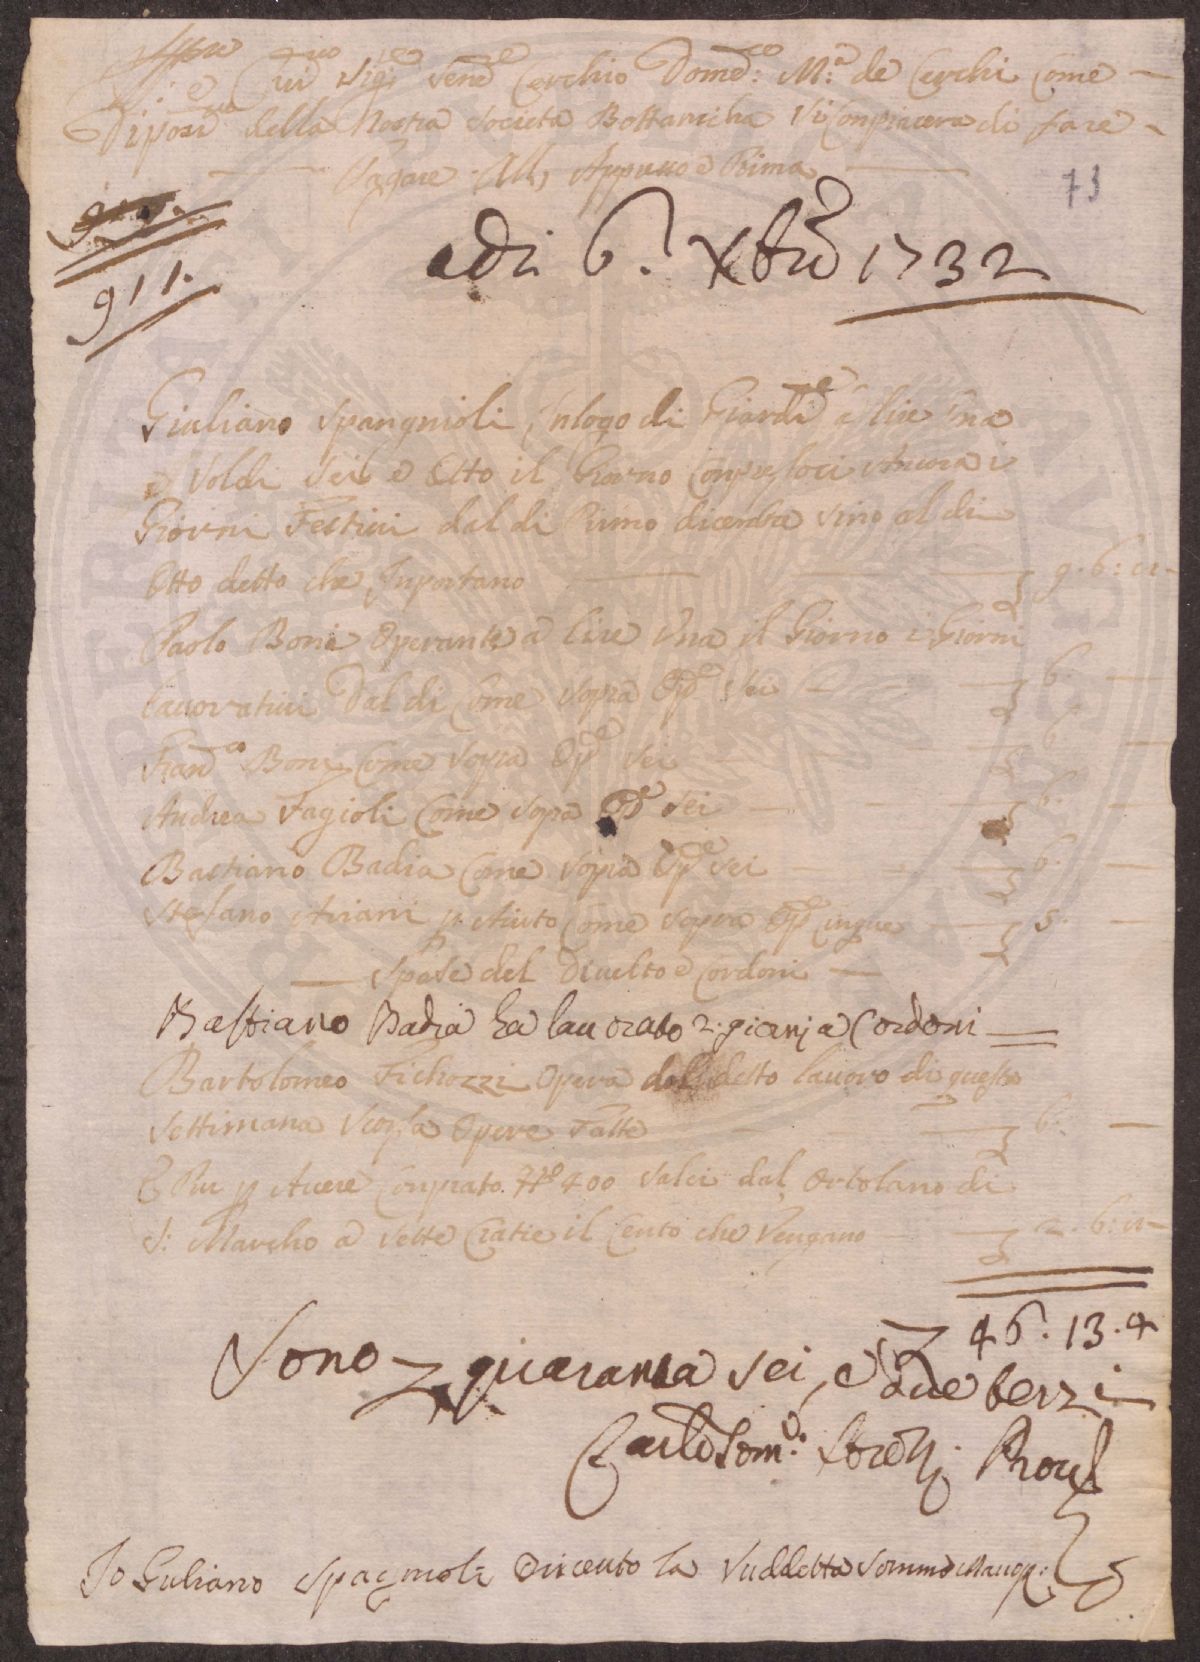 Sig.e Cerchio Dome.co M.a de Cerchi Come
della Nostra Società Bottanicha Vi Conpiacera di fare
Pagare Appresso e Prima
73
911.
adi 6. Xbre 1732
Giuliano Spangnioli Inlogo di Giard.e a lire una
e Soldi Sei e Otto il Giorno Ancora i
Giorni Festivi dal di Primo dicembre sino al di
Otto detto che Inportano 9.6:
Paolo Boni Operante a lire Una il Giorno i Giorni
lavorativi Dal di Come Sopra Op.e Sei 6
Fran.co Boni Come Sopra Op.e Sei 6
Andrea Fagioli Come Sopra Op.e Sei 6
Bastiano Badia Come Sopra Op.e Sei 6
Stefano Ariani p Aiuto Come Sopra Op.e Cinque 5
Spese del Divelto e Cordoni
Bastiano Badia ha lauorato 2 giorni a Cordoni
Bartolomeo Fichozzi Opera dal detto lauoro di questa
Settimana Opere Fatte 6
E Piu p Auere Conprato No 400 Salci dal Ortolano di
S: Marcho a Sette Cratie il Cento che Vengano 2.6:
46.13.4
Sono quaranta sei, e due terzi
Io Guliano Spagnoli O riceuto la Suddetta Somma Mano pp: